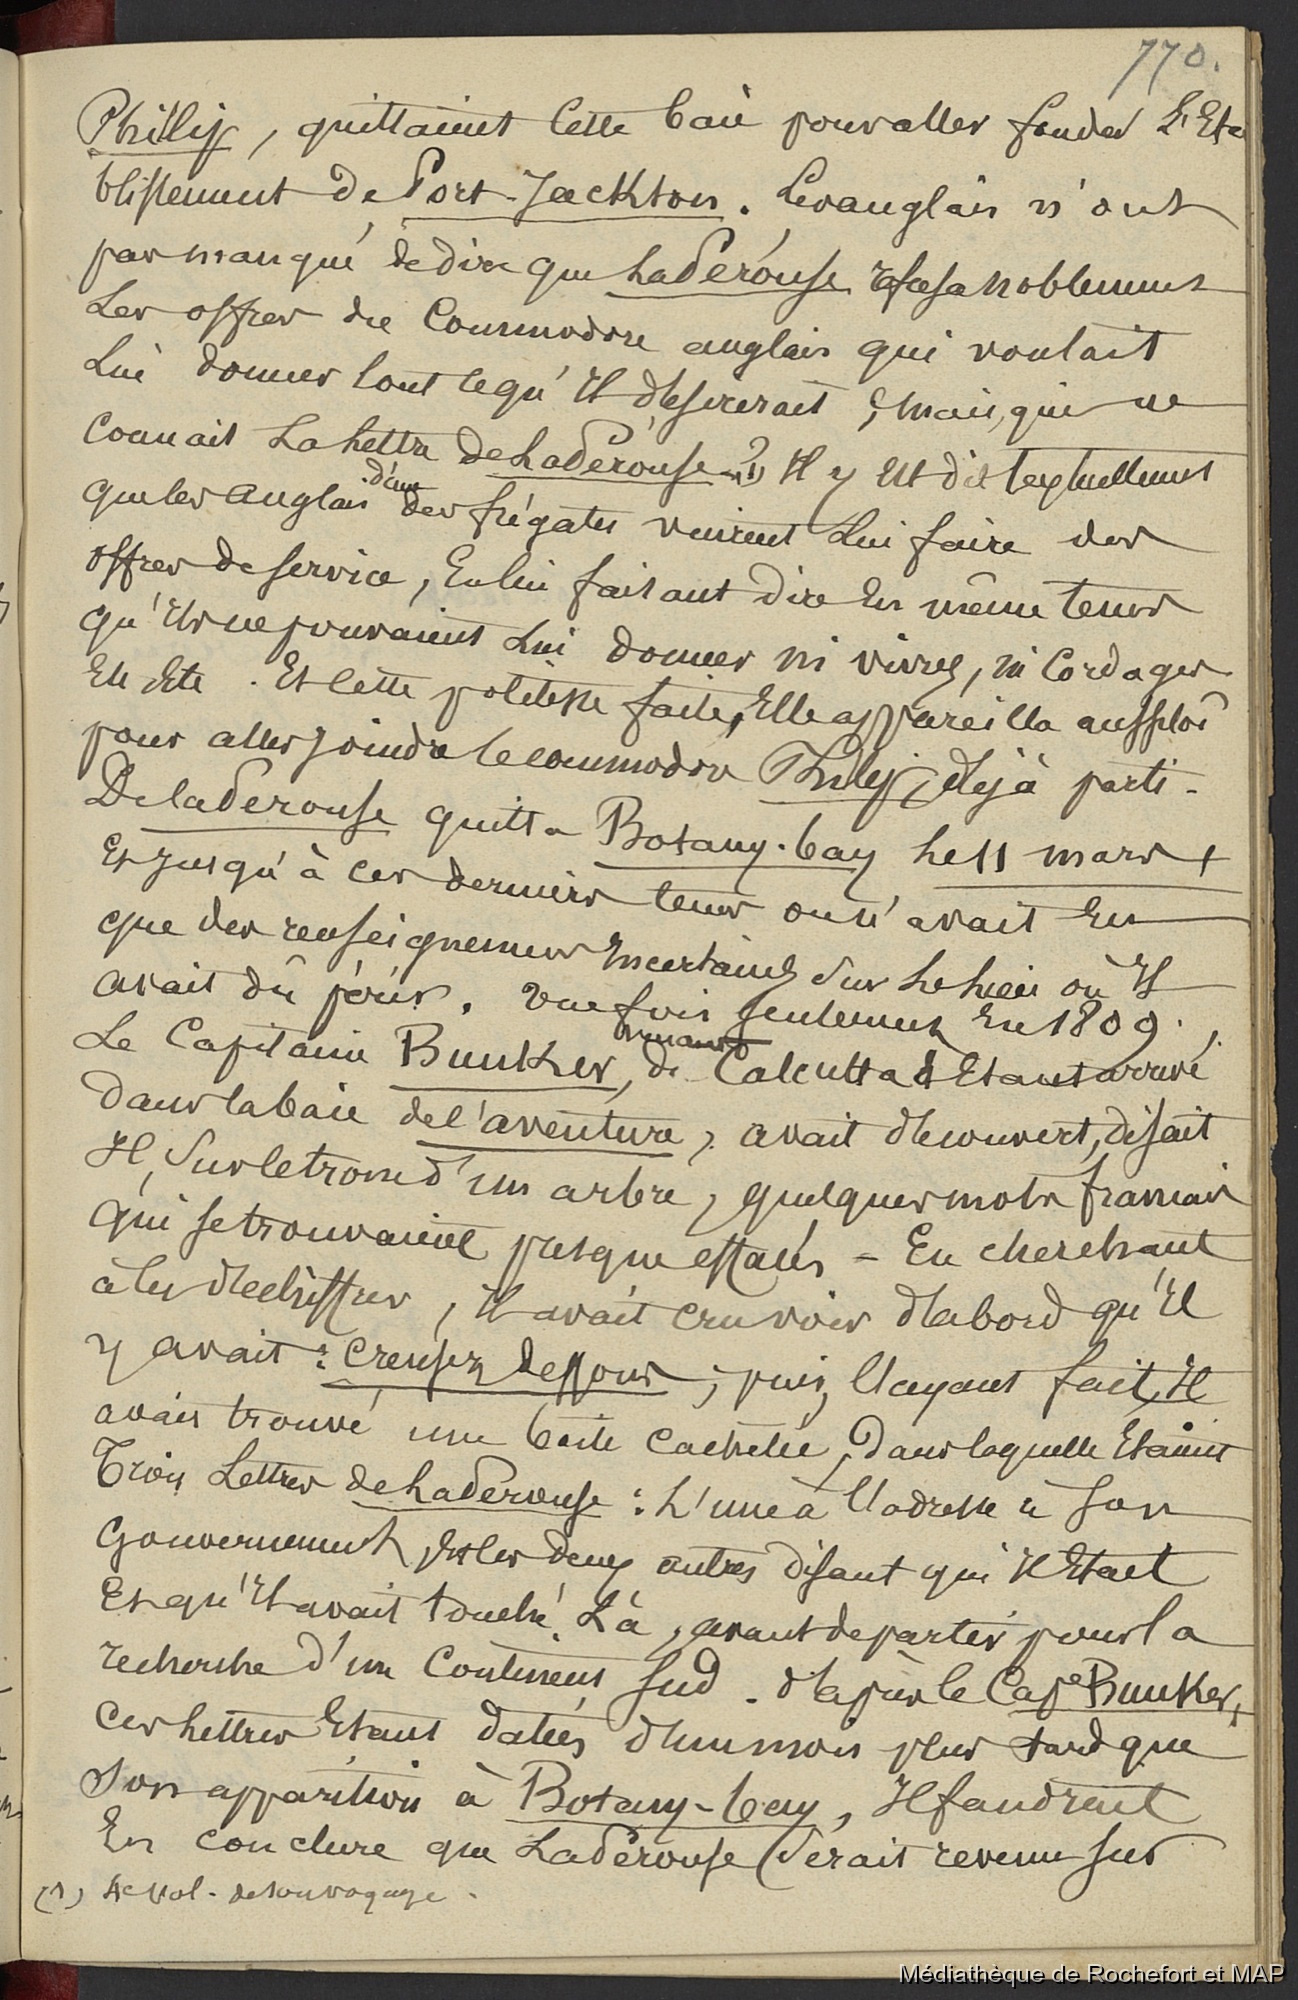 770.
Philip, quittaient cette baie pour aller fonder l'Eta
blissement de Port-Jackson. Les anglais n'ont
pas manqué de dire que LaPérouse refusa noblement
Les offres du Commodore anglais qui voulait
Lui donner tout ce qu'il desirerait ; mais, qui ne
Connait La Lettre de LaPérouse ? (1) Il y est dit textuellement
que les anglais d'une des frégates vinrent Lui faire des
offres de service, En lui faisant dire En même tems
qu'ils ne pouvaient Lui donner ni vivres, ni Cordages
Etc Etc. Et cette politesse faite, Elle appareilla aussitôt
pour aller joindre le commodore Philip, déjà parti.
De LaPerouse quitta Botany-bay Le 11 mars +
Et jusqu'à ces derniers tems on n'avait Eu
que des renseignemens Incertains Sur Le Lieu où Il
avait dû périr. Une fois seulement En 1809,
Le Capitaine Bunker, de Calcutta Etant arrivé
Dans la baie de l'aventure, avait découvert, disait
Il, Sur le tronc d'un arbre, quelques mots français
qui se trouvaient presque effacés - En cherchant
à les déchiffrer, il avait cru voir d'abord qu'Il
y avait : creusez dessous ; puis, l'ayant fait, Il
avait trouvé une boite cachetée, Dans laquelle Etaient
Trois Lettres de LaPerouse : L'une à l'adresse de son
Gouvernement, Et les deux autres disant qui Il Etait
Et qu'Il avait touché Là, avant de partir pour la
recherche d'un Continent Sud. d'après le Cape Bunker,
Ces Lettres Etant datées d'un mois plus tard que
Son apparition à Botany-bay, Il faudrait
En conclure que LaPérouse Serait revenu sur
(1) 4e vol. de son voyage.
Médiathèque de Rochefort et MAP